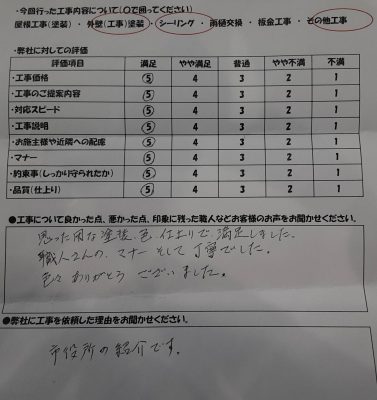 ・今回行った工事内容について(○で囲ってください)
屋根工事(塗装)・外壁(工事)塗装・シーリング・雨樋交換・板金工事・その他工事
・弊社に対しての評価
評価項目 満足 やや満足 普通 やや不満 不満
・工事価格 5 4 3 2 1
・工事のご提案内容 5 4 3 2 1
・対応スピード 5 4 3 2 1
・工事説明 5 4 3 2 1
・お施主様や近隣への配慮 5 4 3 2 1
・マナー 5 4 3 2 1
・約束事(しっかり守られたか) 5 4 3 2 1
・品質(仕上り) 5 4 3 2 1
●工事について良かった点、悪かった点、印象に残った職人などお客様のお声をお聞かせください。
思った用な塗装、色、仕上りで、満足しました。
職人さんの、マナーそして丁寧でした。
色々ありがとうございました。
●弊社に工事を依頼した理由をお聞かせください。
市役所の紹介です。